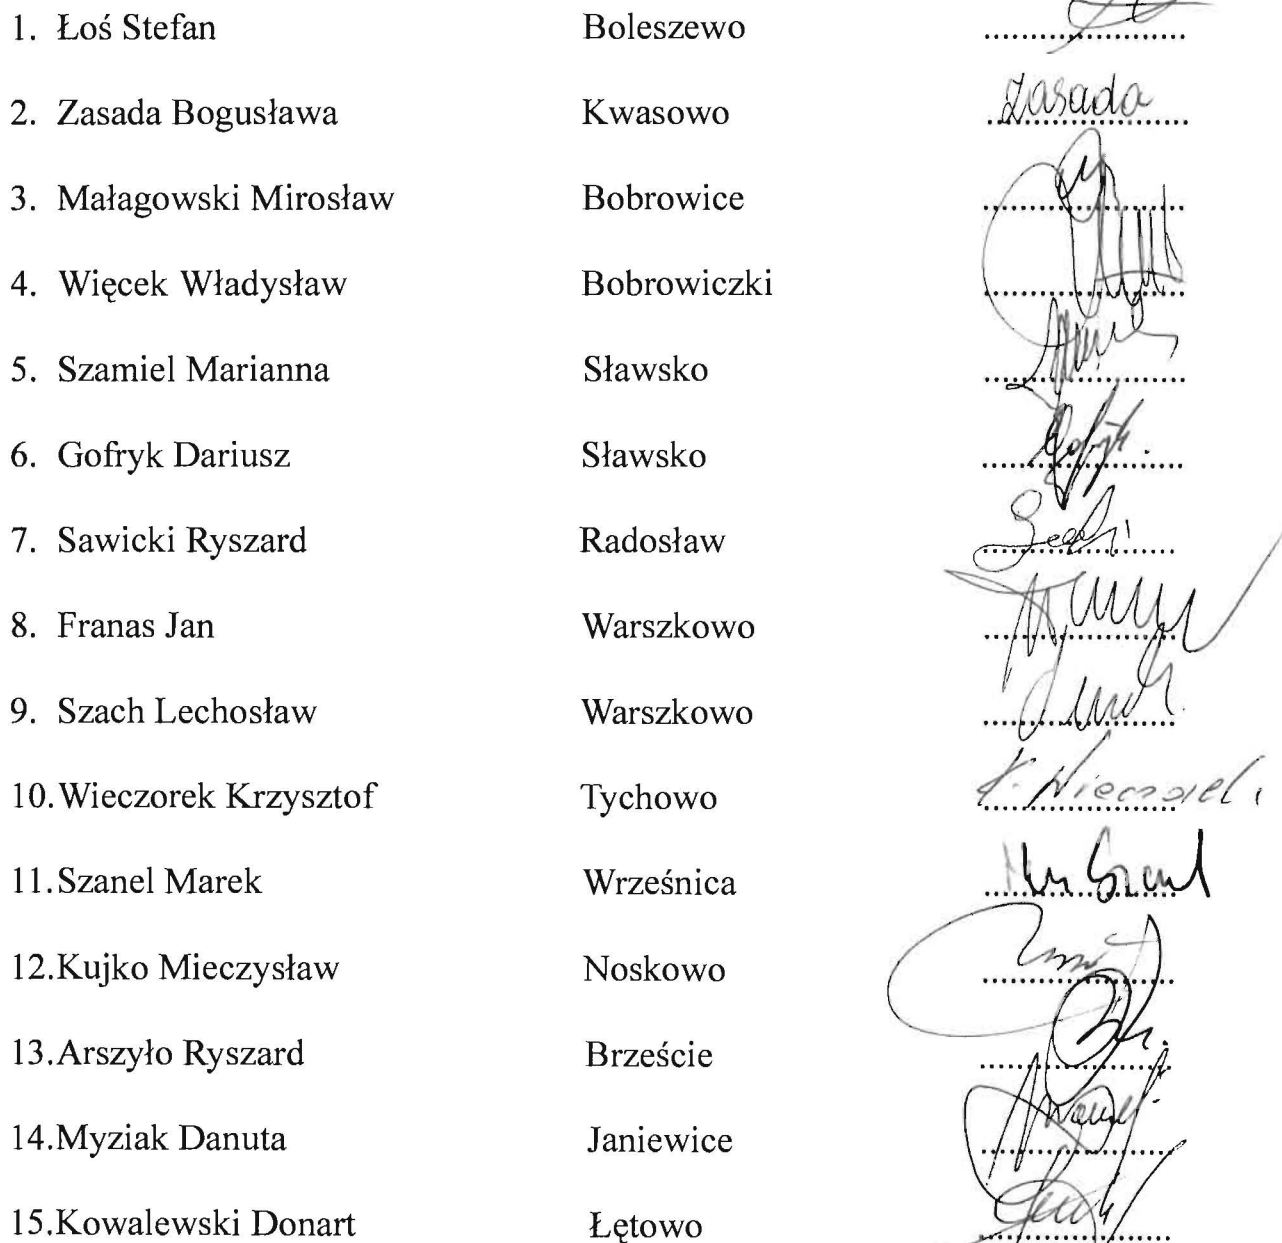 1. Łoś Stefan Boleszewo
2. Zasada Bogusława Kwasowo Zasada
3. Małagowski Mirosław Bobrowice
4. Więcek Władysław Bobrowiczki
5. Szamiel Marianna Sławsko
6. Gofryk Dariusz Sławsko
7. Sawicki Ryszard Radosław
8. Franas Jan Warszkowo
9. Szach Lechosław Warszkowo
10. Wieczorek Krzysztof Tychowo K. Wieczorek
11. Szanel Marek Wrześnica
12. Kujko Mieczysław Noskowo
13. Arszyło Ryszard Brzeście
14. Myziak Danuta Janiewice
15. Kowalewski Donart Łętowo